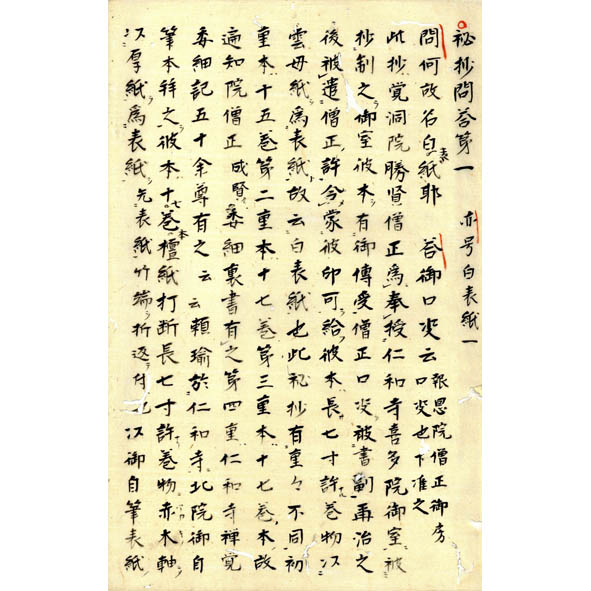 秘抄問答第一　亦号白表紙一
問何故名白表紙耶　答御口决云 報恩院僧正御房口决也下准之
此抄覚洞院勝賢僧正為奉授仁和寺喜多院御室被
抄制之御室彼本有御傳受僧正口决被書劃再治之
後被遣僧正許令蒙彼印可給彼本長七寸許巻物以
雲母紙為表紙故云白表紙也此秘抄有重々不同初
重本十五巻第二重本十七巻第三重本十七巻本故
遍知院僧正成賢委細裏書有之第四重仁和寺禅覚
委細記五十余尊有之云云頼瑜於仁和寺北院御自
筆本拝之彼本十七巻本檀紙打断長七寸許巻物赤木軸
以厚紙為表紙先表紙竹端折返付以御自筆表紙